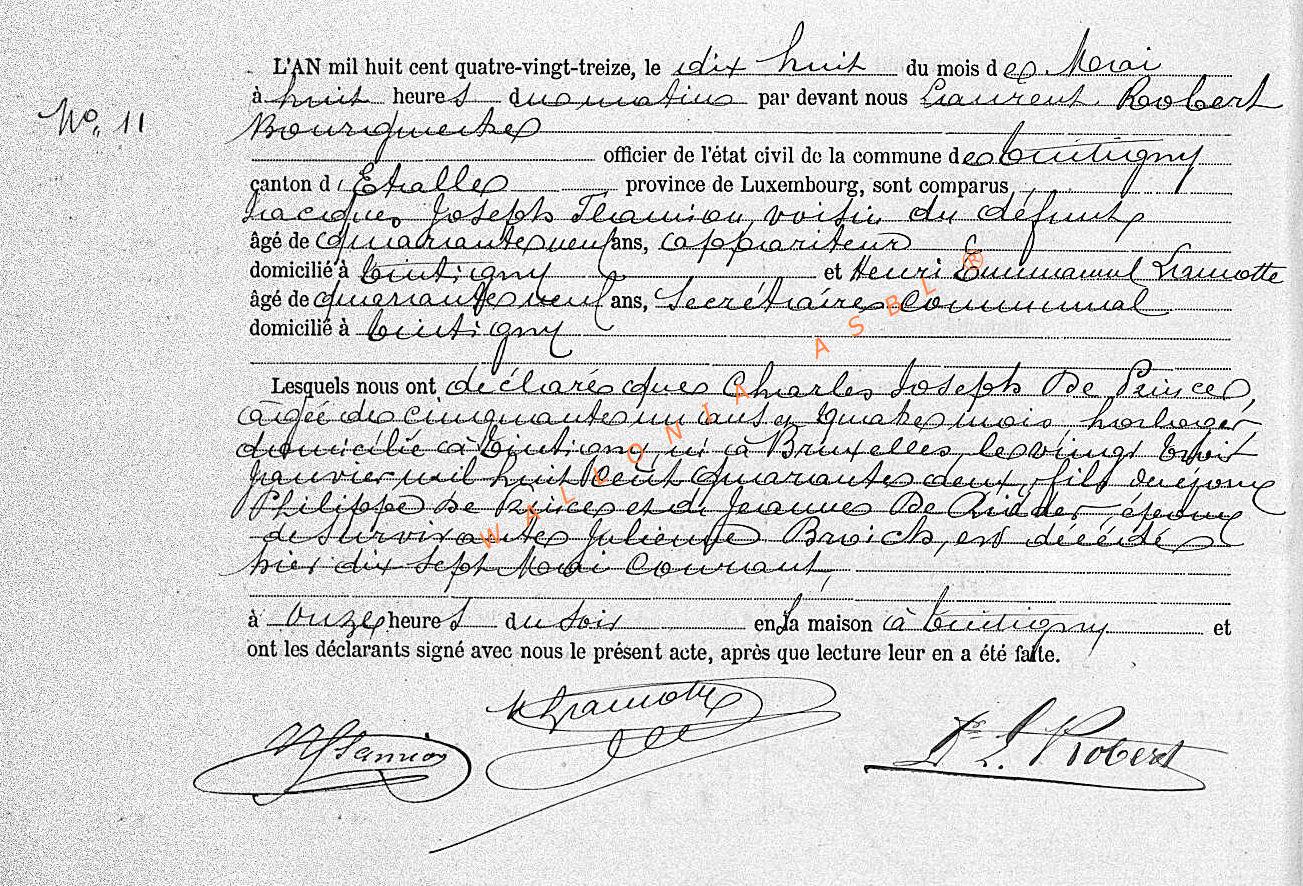 L'AN mil huit cent quatre-vingt-treize, le dix huit du mois de Mai
No. 11
à huit heures du matin par devant nous Laurent Robert
Bourgmestre
officier de l'état civil de la commune de tintigny
canton d'Etalle province de Luxembourg, sont comparus
Jacques Joseph voisin du défunt
âgé de quarante neuf ans, appariteur
domicilié à tintigny et Henri Emmanuel Lamotte
âgé de quarante neuf ans, Secrétaire communal
domicilié à tintigny
Lesquels nous ont déclaré que Charles Joseph De Prince,
âgée de cinquante un ans et quatre mois horloger
domicilié à tintigny né à Bruxelles, le vingt
janvier mil huit cent quarante deux, fils
Philippe De Prince et de Jeanne De Ridder époux
de survivante Julienne, est décédé
hier dix sept Mai courant,
à onze heures du soir en la maison à tintigny et
ont les déclarants signé avec nous le présent acte, après que lecture leur en a été faite.
Lamotte
L. Robert
WALLONIA ASBL ®